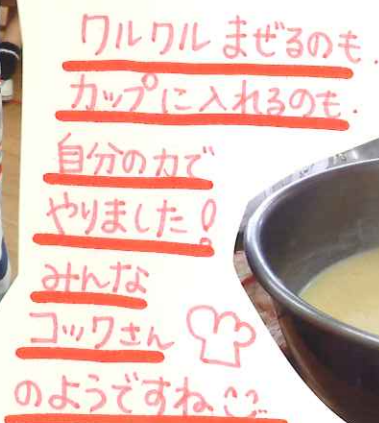 クルクルまぜるのも.
カップに入れるのも.
自分の力で
やりました!
みんな
コックさん
のようですね